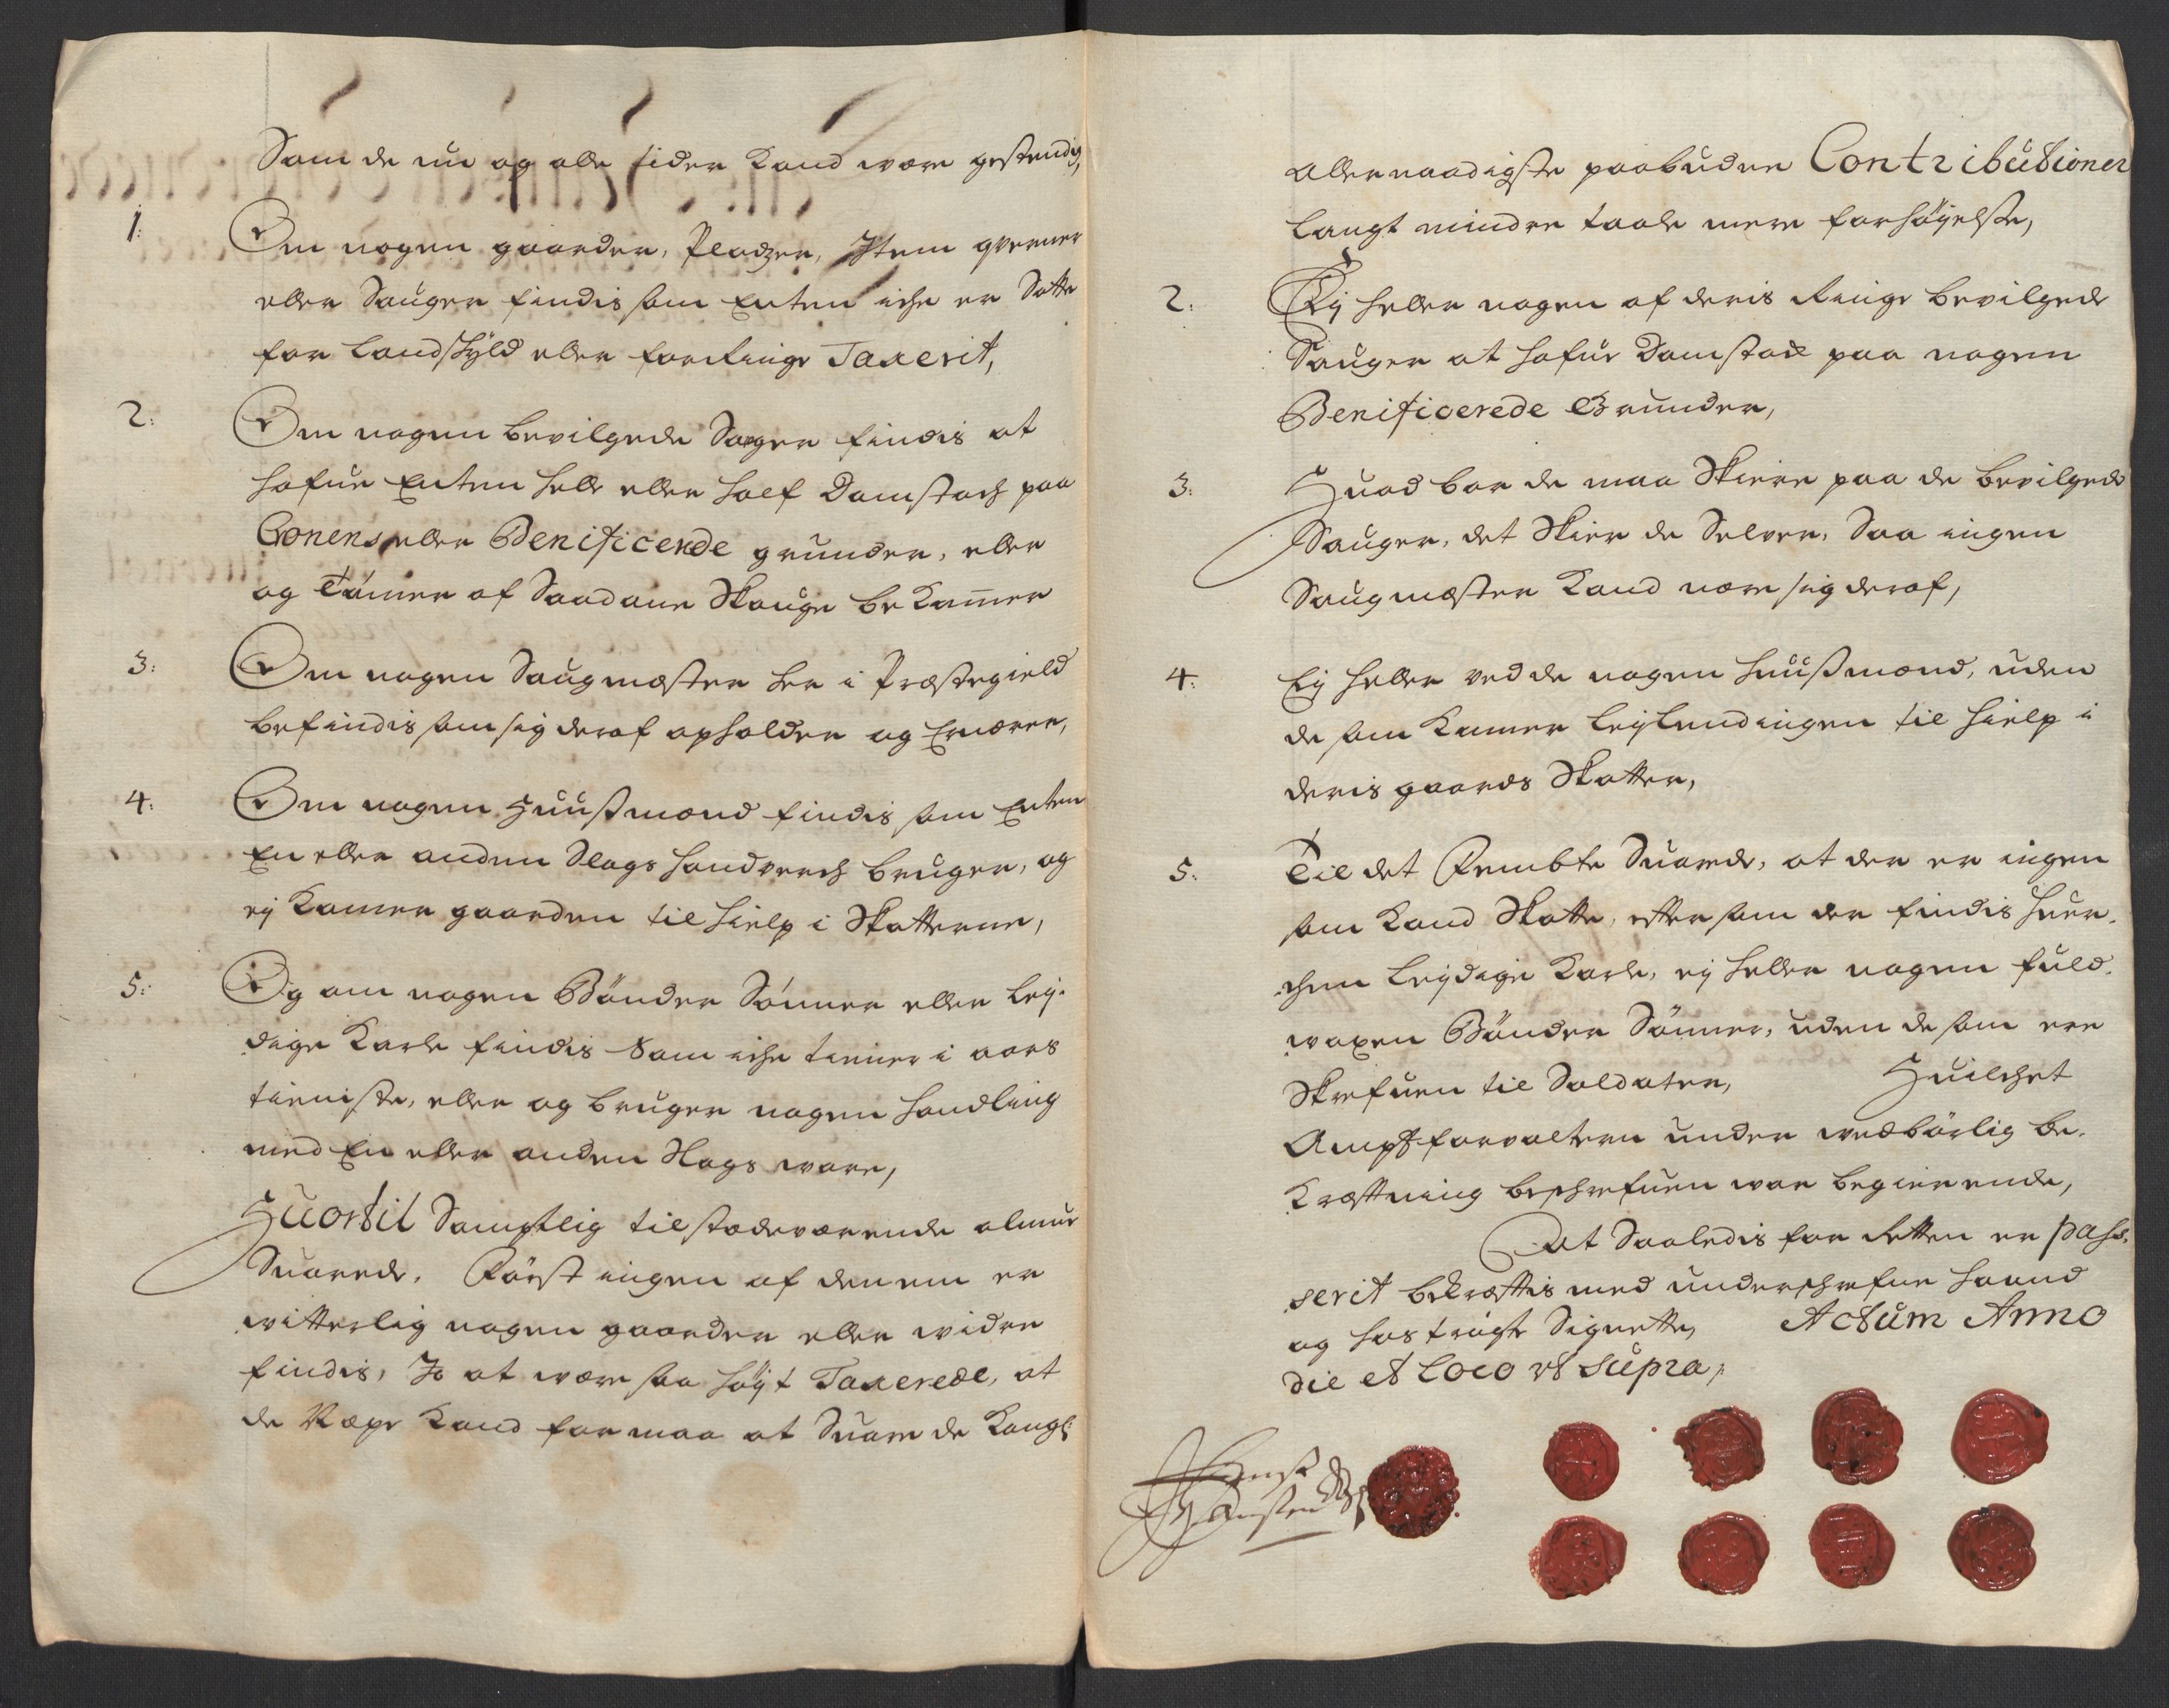 Som de nu og alle tider kand være gestendig,
1: Om nogen gaarder, Pladzer, Item qverner
eller Sauger findis som Enten iche er Satte
for Landskyld eller forringe Taxerit,
2: Om nogen bevilgede Sager findis at
hafue Enten hell eller half Damstoch paa
Cronens eller Benificerede grunder, eller
og Tømer af Saadane Skouge bekomer
3: Om nogen Saugmæster her i Præstegield
befindis som sig deraf opholder og Ernærer,
4: Om nogen Huusmænd findis som Enten
En eller anden Slags handverch bruger, og
ej komer gaarden til hielp i Skatterne,
5: Og om nogen Bønder Sønner eller Løj-
dige Karle findis som iche tiener i aars
tieniste, eller og bruger nogen handling
med En eller anden Slags vare,
Huortil Samptlig tilstædeværende almue
Suarede. Først ingen af dennem er
witterlig nogen gaarder eller widre
findis, Jo at være saa høyt Taxerede, at
de Næpe kand formaa at Suare de Kongl:
allernaadigste paabudne Contributioner
langt mindre taale mere forhøyelse,
2: Ej heller nogen af deris Ringe bevilgede
Sauger at hafue Damstoch paa nogen
Benificerede Grunder,
3: Huad bor de maa Skiere paa de bevilgede
Sauger, det Skier de Selver, Saa ingen
Saugmæster kand nære sig deraf,
4: Ej heller ved de nogen huusmænd, uden
de som komer Leylendingen til hielp i
deris gaards Skatter,
5: Til det Fembte Suarede, at der er ingen
som kand Skatte, eftersom der findis huer-
chen Leydige Karle, ej heller nogen fuld-
waxen Bønder Sønner, uden de som ere
Skrefuen til Soldater, Huilchet
Ampt forvalteren under wedbørlig be-
Kræfttning beschrefuen war begierende,
At Saaledis for Retten er pahs-
serit bekræftis med underschrefne haand
og hostrøgte Signetter, Actum Anno
die et Loco ut supra,